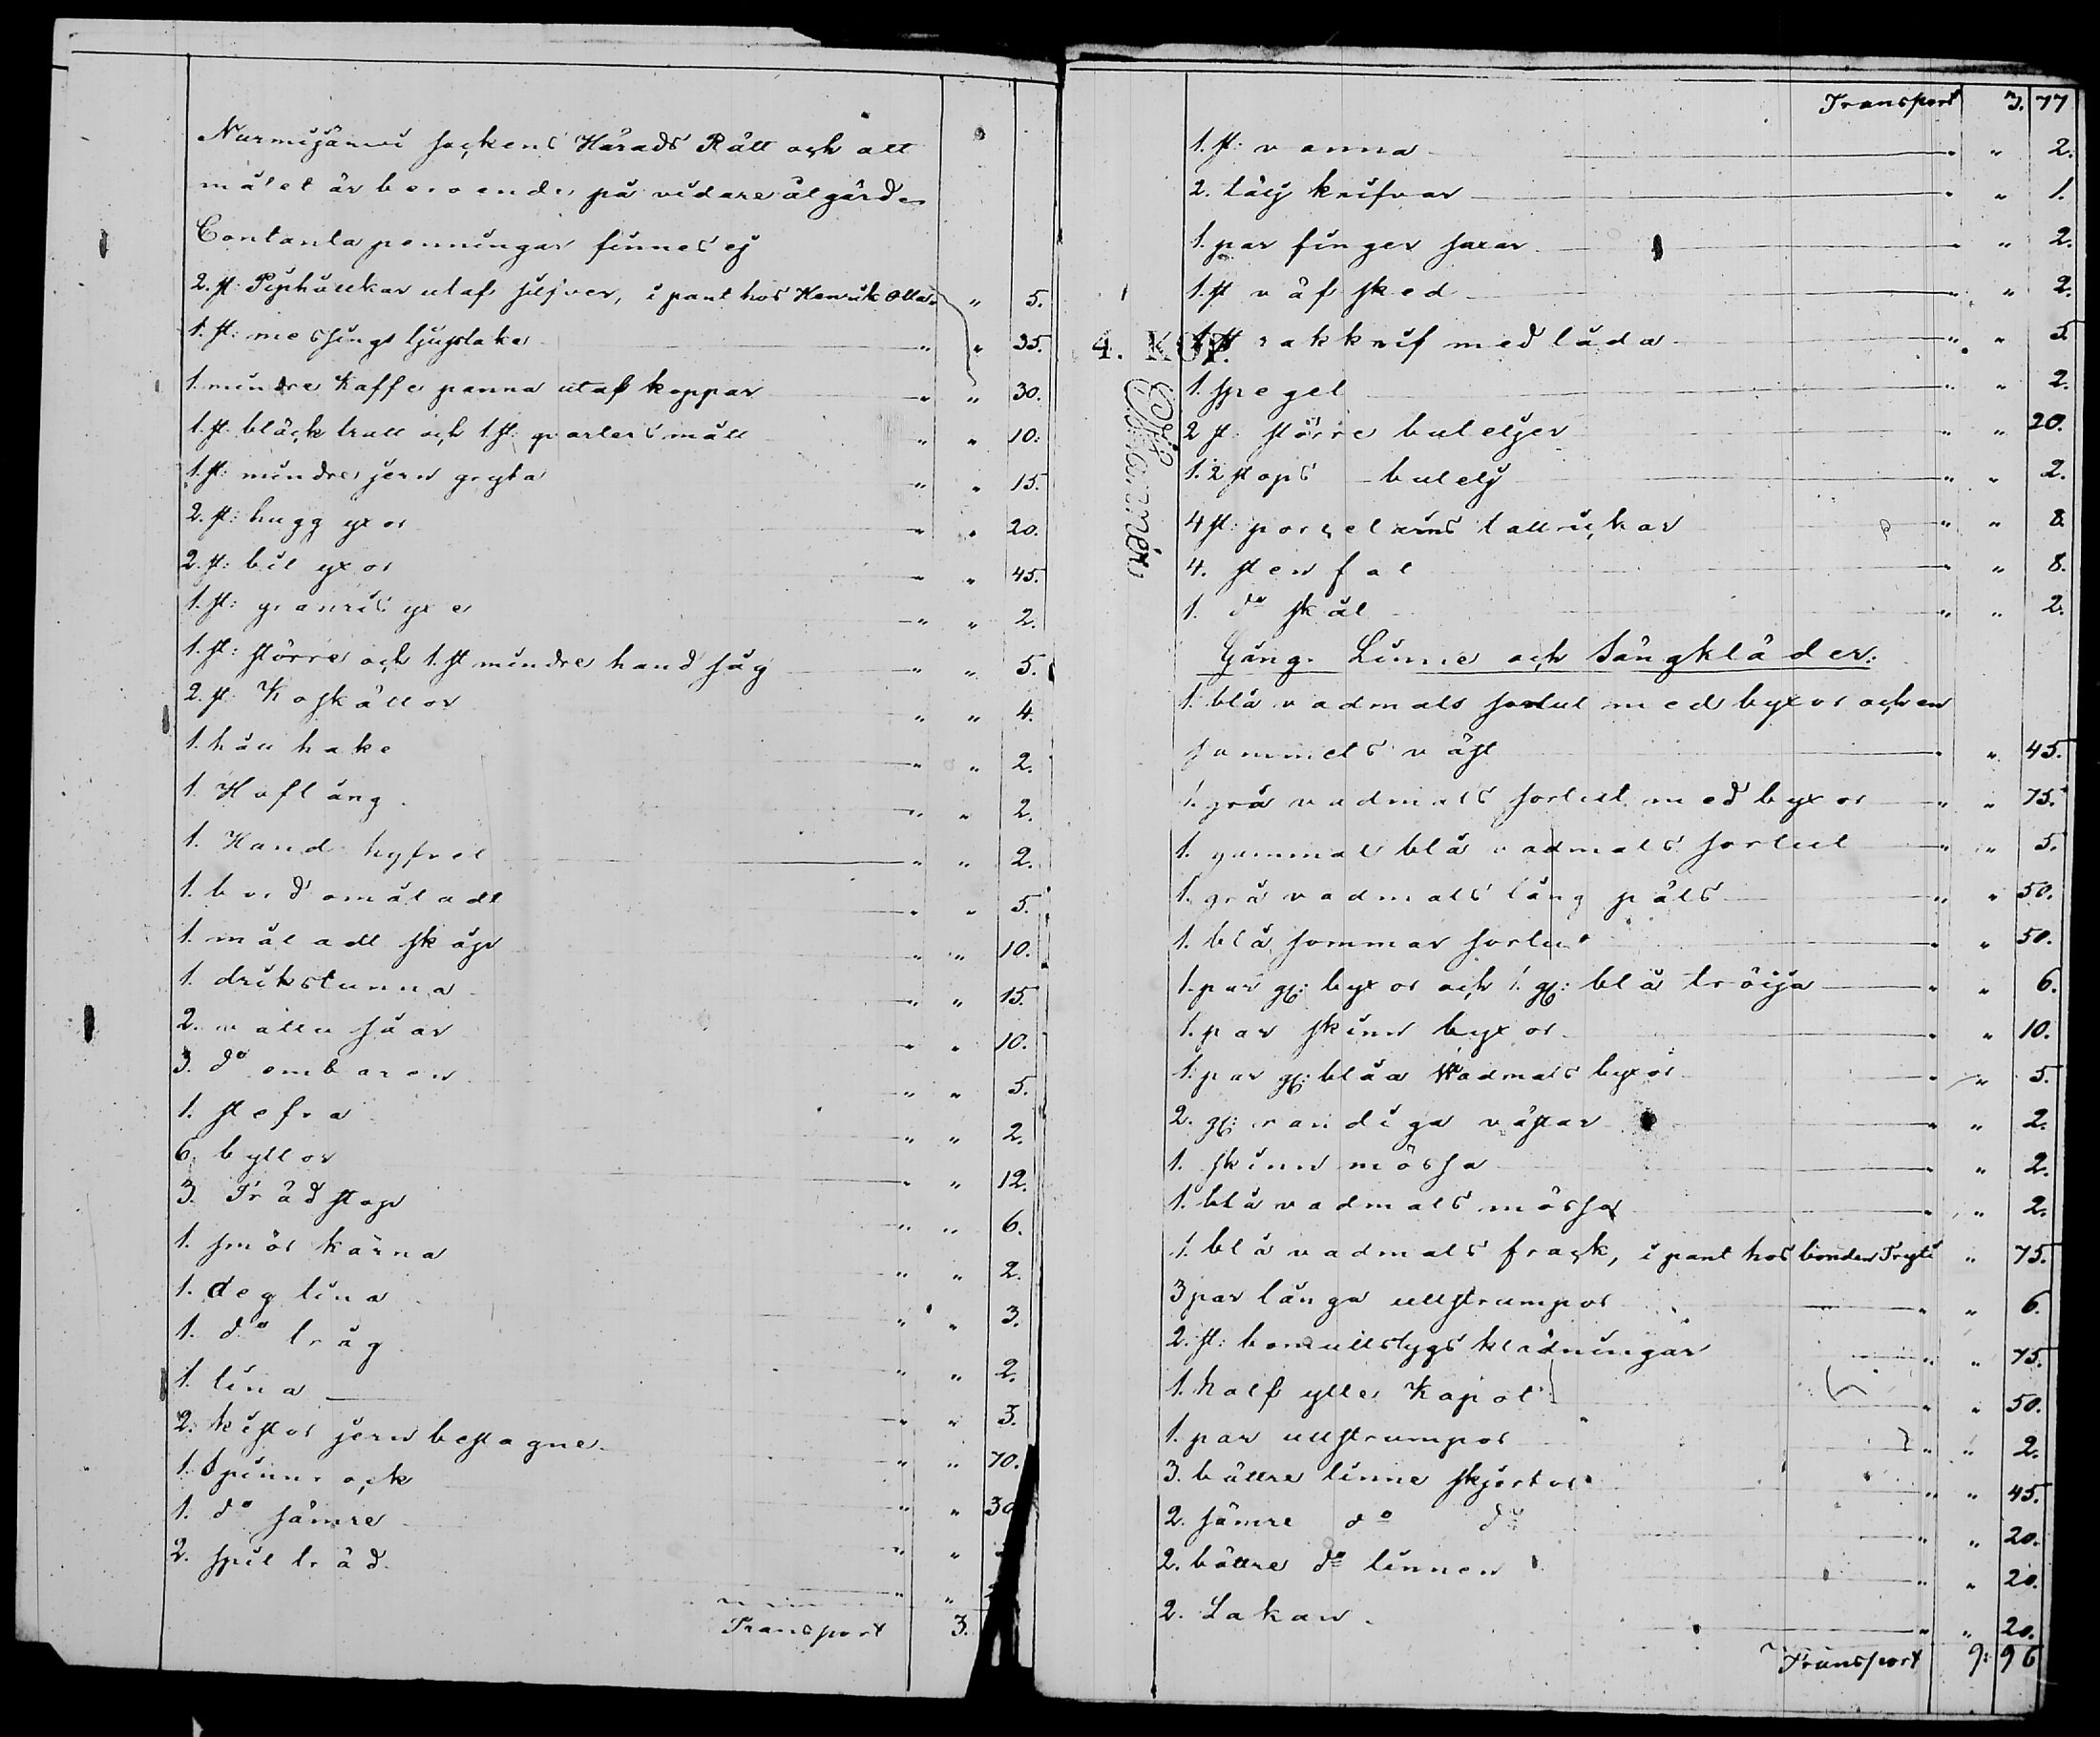 Nurmijärvi sockens Härads Rätt och att
målet är beroende på vidare åtgärder
Contanta penningar finnes ej
2. st: Piphuckar utaf silfver, i pant hos Henrik Otta " 5.
1. st: messings ljusstake " " 35.
1. mindre Kaffe panna utaf koppar " " 30.
1. st. bläck tratt och 1 st: qvarters mått " " 10.
1. st: mindre jern gryta " " 15.
2. st: hugg yxor " " 20.
2. st: bil yxor " " 45.
1. st: granris yxe " " 2.
1. st: större och 1. st mindre hand såg " " 5.
2. st Koskällor " " 4.
1. håll hake " " 2.
1. Hoftång " " 2.
1. Hand hyfvel " " 2.
1. bord omåladt " " 5.
1. måladt skåp " " 10.
1. drickstunna " " 15.
2. vattu såar " " 10.
3. do embaren " " 5.
1. stefva " " 2.
6. byttor " " 12.
3. Träd stop " " 6.
1. smör kärna " " 2.
1. deg tina " " 3.
1. do tråg " " 2.
1. tina " " 3.
2. kistor jern beslagne " " 70.
1. Spinnrock " " 30
1. do sämre " "
2. spil träd " "
Transport 3.
Transport 3. 77
1. st: vanna " " 2.
2. tälj knifvar " " 1.
1. par finger saxar " " 2.
1. st väfsked " " 2.
4. KOP.
1 st rakknif med låda " " 5
1. spegel " " 2.
2 st större buteljer " " 20.
1. 2 stops butelj " " 2.
4 st: porcelains tallrickar " " 8.
4. sten fat " " 8.
1. do skål " " 2.
Gång. Linne och Sängkläder:
1. blå vadmals sortut med byxor och en
sammets väst " " 45.
1. grå vadmals sortut med byxor " " 75.
1. gammal blå vadmals sortut " " 5.
1. grå vadmals lång päls " " 50.
1. blå sommar sortut " " 50.
1. par gl: byxor och 1. gl: blå tröija " " 6.
1. par skinn byxor " " 10.
1. par gl: blåa Wadmals byxor " " 5.
2. gl: randiga västar " " 2.
1. skinn mössa " " 2.
1. blå vadmals mössa " " 2.
1. blå vadmals frack, i pant hos bonden Tryti " 75.
3 par långa ullstrumpor " " 6.
2. st: bomullstygs klädningar " " 75.
1. half ylle Kapot " " 50.
1. par ullstrumpor " " 2.
3. bättre linne skjortor " " 45.
2. sämre do do " " 20.
2. bättre do linnen " " 20.
2. Lakan " " 20.
Transport 9: 96